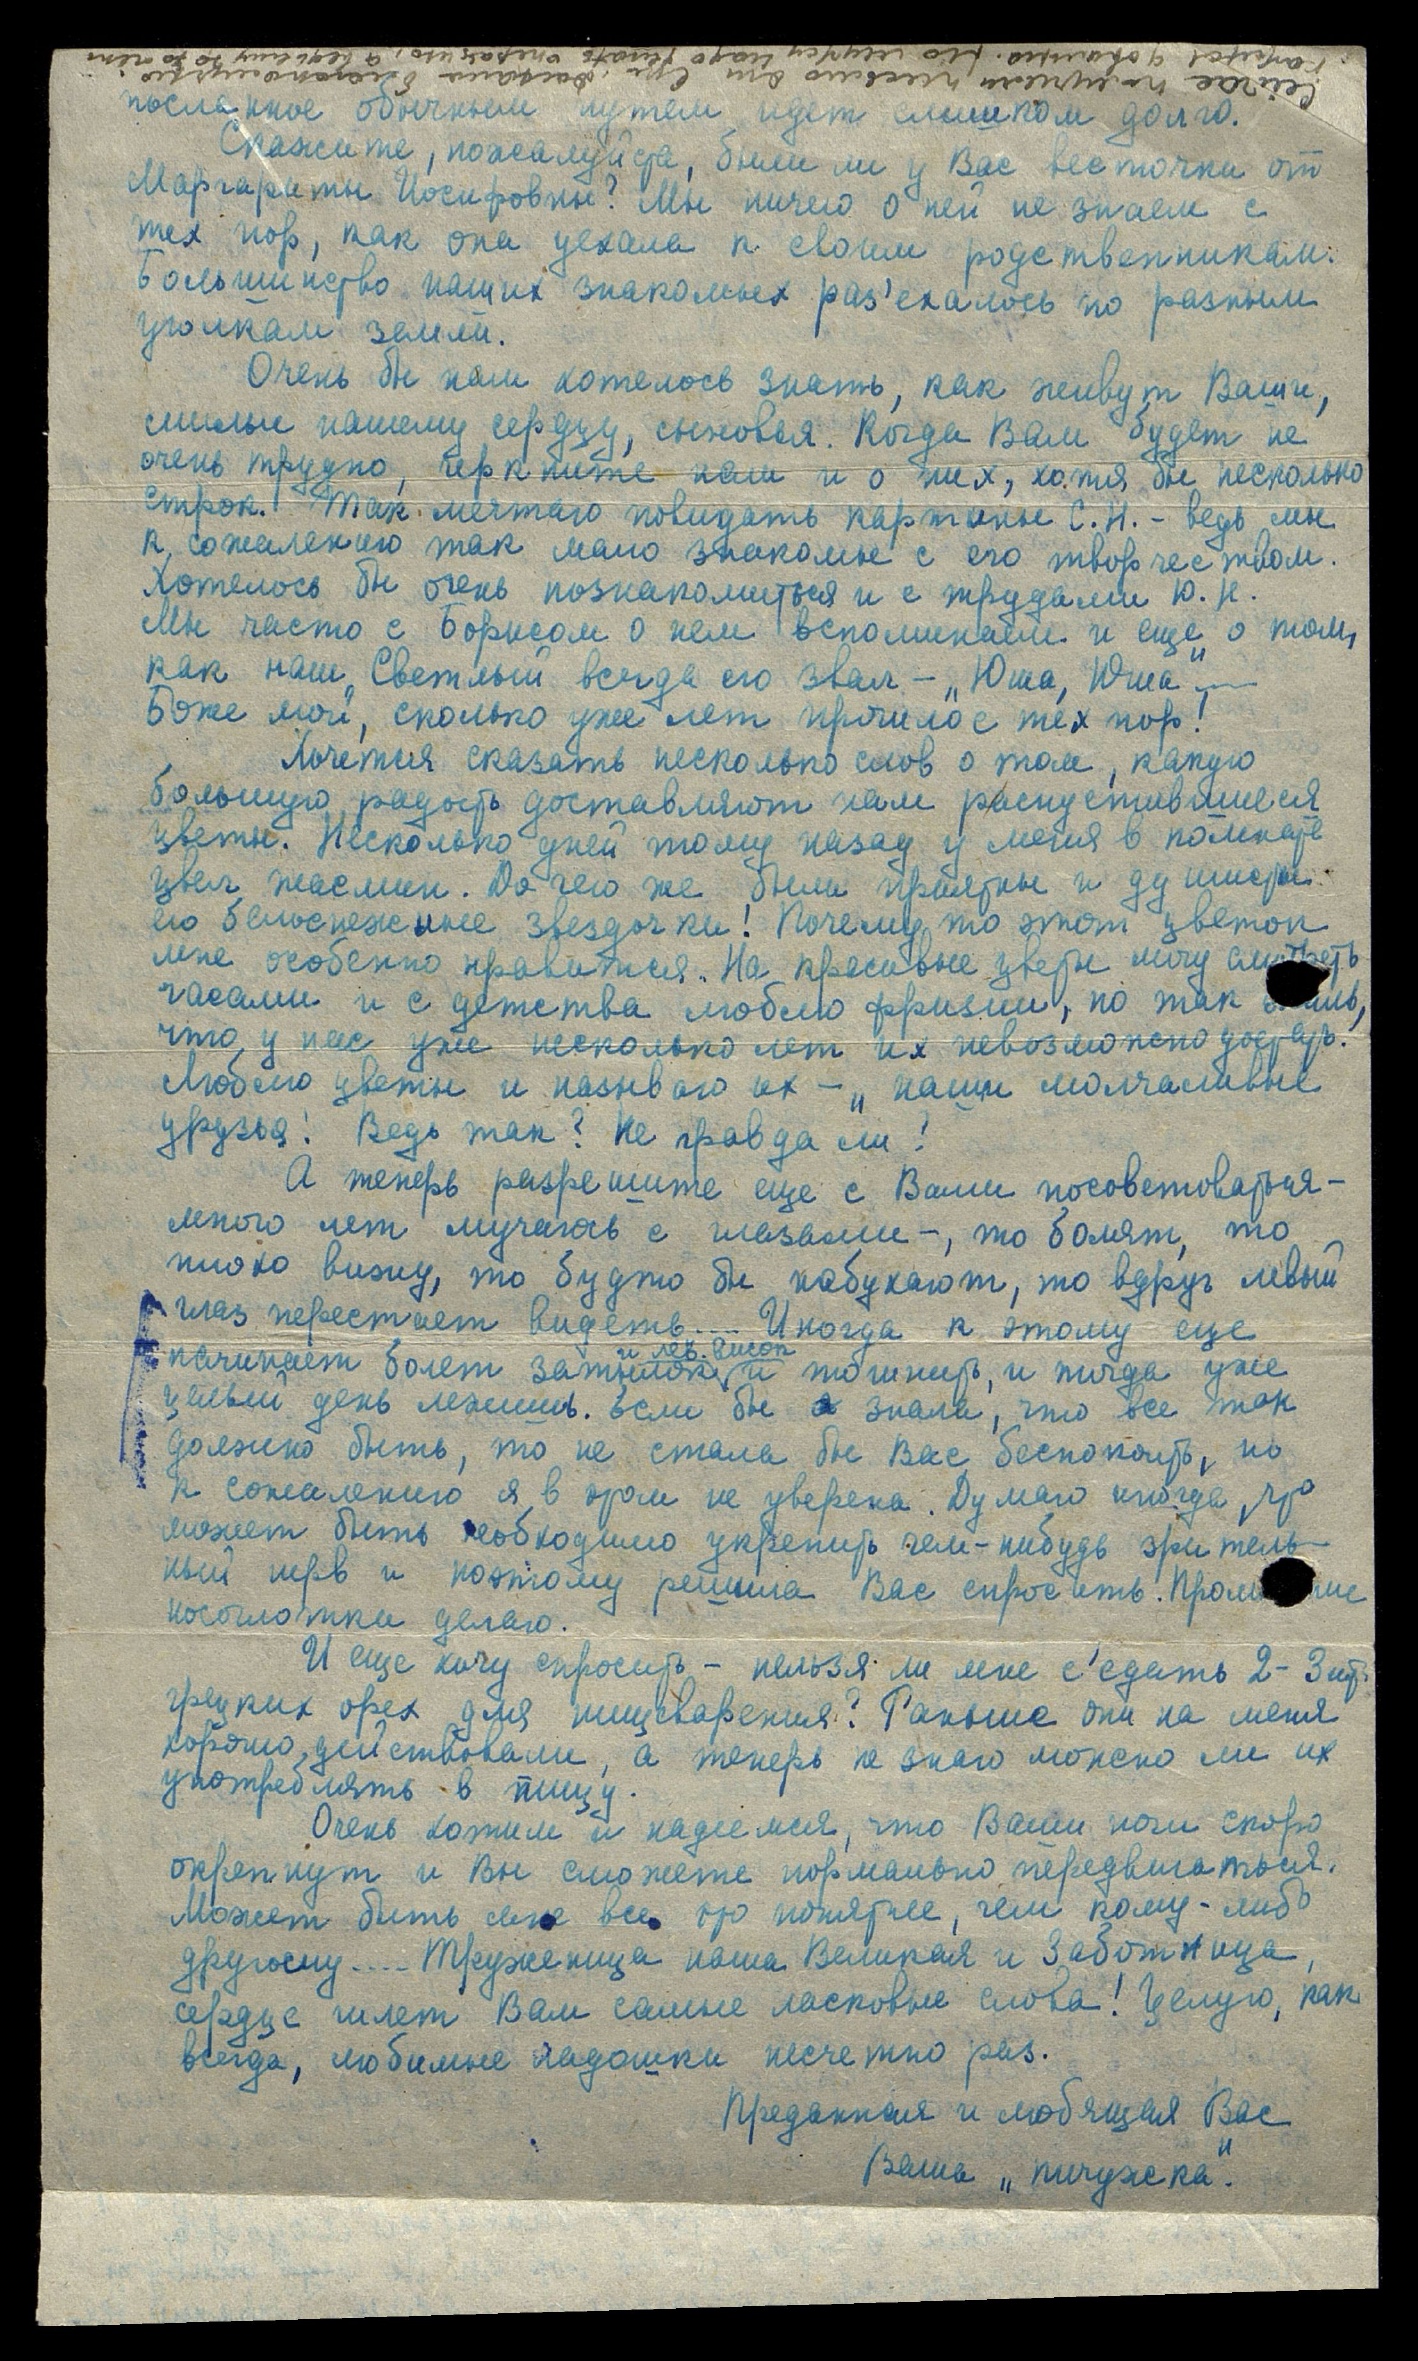 посланное обычным путем идет слишком долго.
Скажите, пожалуйста, были ли у Вас весточки от
Маргариты Иосифовны? Мы ничего о ней не знаем с
тех пор, как она уехала к своим родственникам.
Большинство наших знакомых раз'ехалось по разным
уголкам земли.
Очень бы нам хотелось знать, как живут Ваши,
милые нашему сердцу, сыновья. Когда Вам будет не
очень трудно, черкните нам и о них, хотя бы несколько
строк. Так мечтаю повидать картины С.Н. – ведь мы
к сожалению так мало знакомы с его творчеством.
Хотелось бы очень познакомиться и с трудами Ю.Н.
Мы часто с Борисом о нем вспоминаем и еще о том,
как наш Светлый всегда его звал – „Юша, Юша" —
Боже мой, сколько уже лет прошло с тех пор!
Хочется сказать несколько слов о том, какую
большую радость доставляют нам распустившиеся
цветы. Несколько дней тому назад у меня в комнате
цвел жасмин. До чего же были приятны и душисты
его белоснежные звездочки! Почему то этот цветок
мне особенно нравится. На красивые цветы могу смотреть
часами и с детства люблю фризии, но так жаль,
что у нас уже несколько лет их невозможно достать.
Люблю цветы и называю их – „наши молчаливые
друзья! Ведь так? Не правда ли!
А теперь разрешите еще с Вами посоветоваться –
много лет мучаюсь с глазами –, то болят, то
плохо вижу, то будто бы набухают, то вдруг левый
глаз перестает видеть.... Иногда к этому еще
начинает болет затылок и лев. висок и тошнить, и тогда уже
целый день лежишь. Если бы я знала, что все так
должно быть, то не стала бы Вас беспокоить, но
к сожалению я в этом не уверена. Думаю иногда, что
может быть необходимо укрепить чем-нибудь зритель-
ный нерв и поэтому решила Вас спросить. Промывание
носоглотки делаю.
И еще хочу спросить – нельзя ли мне с'едать 2-3 шт.
грецких орех для пищеварения? Раньше они на меня
хорошо действовали, а теперь не знаю можно ли их
употреблять в пищу.
Очень хотим и надеемся, что Ваши ноги скоро
окрепнут и Вы сможете нормально передвигаться.
Может быть мне все это понятнее, чем кому-либо
другому.... Труженица наша Великая и Заботница,
сердце шлет Вам самые ласковые слова! Целую, как
всегда, любимые ладошки несчетно раз.
Преданная и любящая Вас
Ваша „пичужка".